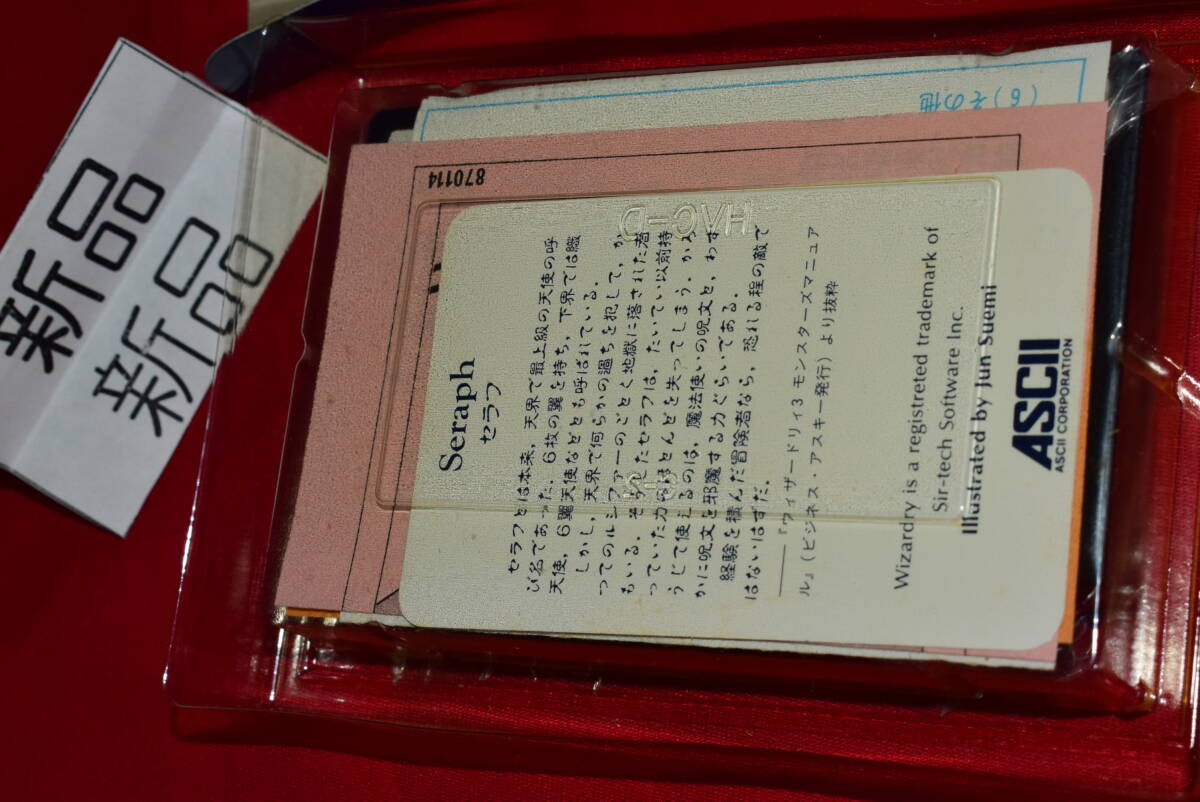 新品
新品
(6)その他
870114
HVC-D
Seraph
セラフ
セラフとは本来，天界で最上級の天使の呼
び名であった．6枚の翼を持ち，下界では熾
天使，6翼天使などとも呼ばれている．
しかし，天界で何らかの過ちを犯して，か
ってのルシファーのごとく地獄に落された者
もいる．そうしたセラフは，たいてい以前持
っていた力のほとんどを失ってしまう．かろ
うじて使えるのは，魔法使いの呪文と，わず
かに呪文を邪魔する力ぐらいである．
経験を積んだ冒険者なら，恐れる程の敵で
はないはずだ．
――『ウィザードリィ3 モンスターズマニュア
ル』(ビジネス・アスキー発行）より抜粋
Wizardry is a registreted trademark of
Sir-tech Software Inc.
Illustrated by Jun Suemi
ASCII
ASCII CORPORATION